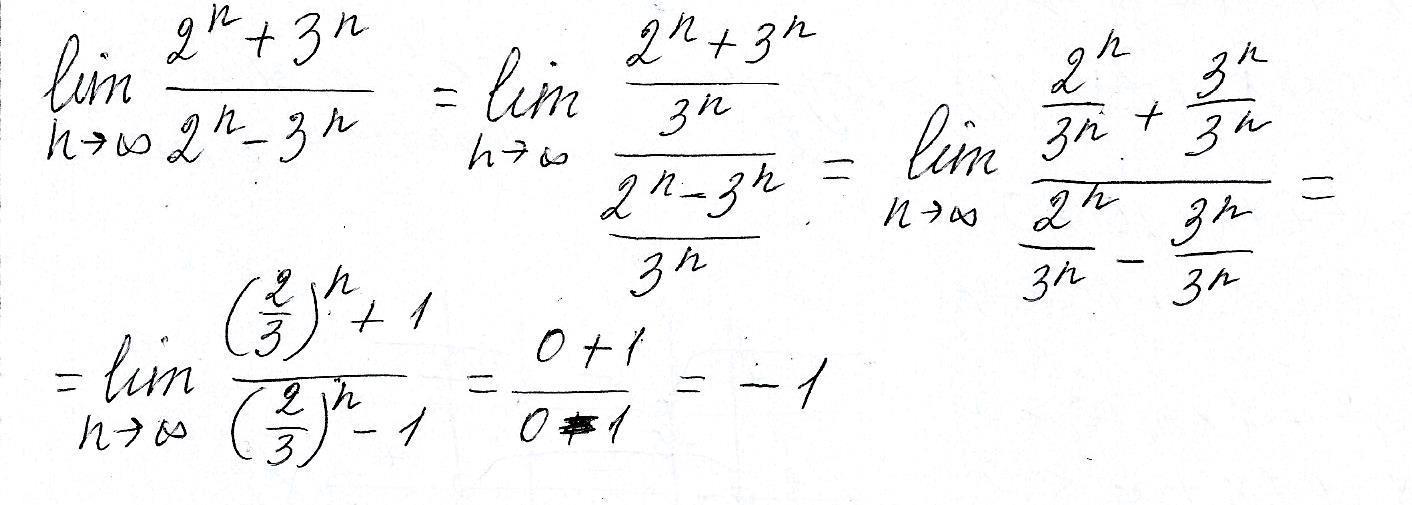 lim n→∞ (2^n + 3^n)/(2^n - 3^n) = lim n→∞ ((2^n + 3^n)/3^n)/((2^n - 3^n)/3^n) = lim n→∞ (2^n/3^n + 3^n/3^n)/(2^n/3^n - 3^n/3^n) =
= lim n→∞ ((2/3)^n + 1)/((2/3)^n - 1) = (0 + 1)/(0 - 1) = -1